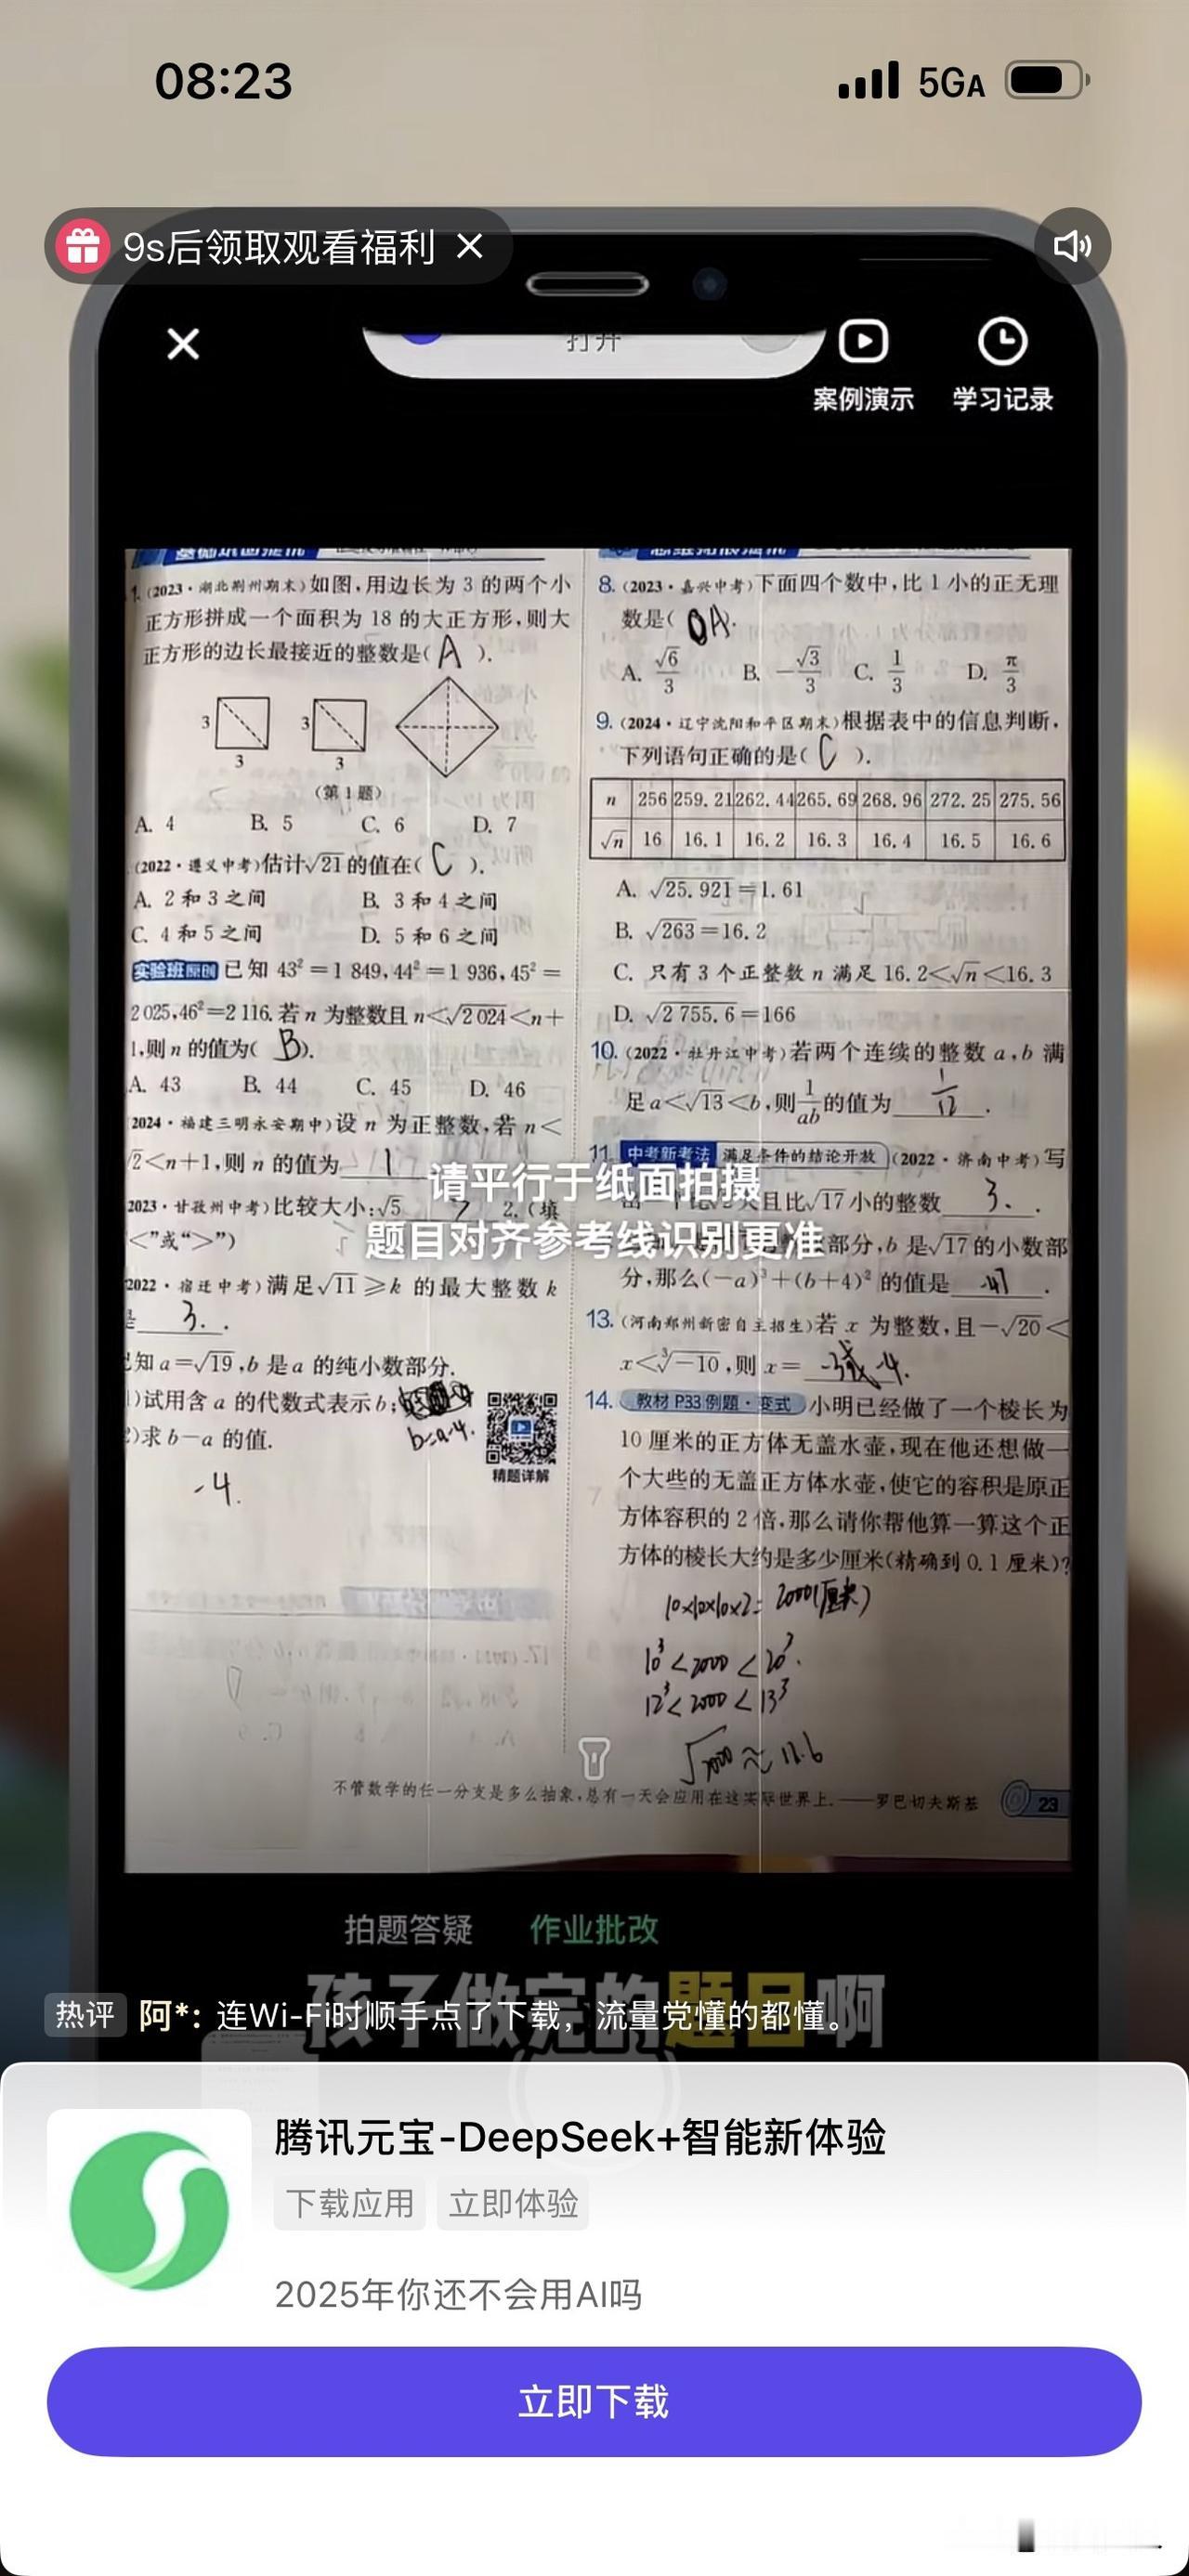 08:23
5GA
9s后领取观看福利 ×
打开
案例演示
学习记录
1.(2023·湖北荆州期末)如图,用边长为 3 的两个小
正方形拼成一个面积为 18 的大正方形,则大
正方形的边长最接近的整数是( A ).
3
3
3
3
(第1题)
A. 4 B. 5 C. 6 D. 7
(2022·遵义中考)估计√21的值在( C ).
A. 2 和 3 之间 B. 3 和 4 之间
C. 4 和 5 之间 D. 5 和 6 之间
实验班原创 已知 43²=1 849,44²=1 936,45²=
2 025,46²=2 116.若 n 为整数且 n<√2 024<n+
1,则 n 的值为( B ).
A. 43 B. 44 C. 45 D. 46
2024·福建三明永安期中)设 n 为正整数,若 n<
√2<n+1,则 n 的值为 1
2023·甘孜州中考)比较大小:√5 2.(填
<”或“>”)
2022·宿迁中考)满足√11≥k 的最大整数 k
是 3. .
已知 a=√19,b 是 a 的纯小数部分.
)试用含 a 的代数式表示 b;
b=a-4.
)求 b-a 的值.
精题详解
-4.
8.(2023·嘉兴中考)下面四个数中,比 1 小的正无理
数是( A ).
A. √6/3 B. -√3/3 C. 1/3 D. π/3
9.(2024·辽宁沈阳和平区期末)根据表中的信息判断,
下列语句正确的是( C ).
n 256 259.21 262.44 265.69 268.96 272.25 275.56
√n 16 16.1 16.2 16.3 16.4 16.5 16.6
A. √25.921=1.61
B. √263=16.2
C. 只有 3 个正整数 n 满足 16.2<√n<16.3
D. √2 755.6=166
10.(2022·牡丹江中考)若两个连续的整数 a,b 满
足 a<√13<b,则 1/ab 的值为 1/12 .
11. 中考新考法 满足条件的结论开放 (2022·济南中考)写
且比√17 小的整数 3. .
请平行于纸面拍摄
题目对齐参考线识别更准
部分,b 是√17的小数部
分,那么(-a)³+(b+4)² 的值是 .
13.(河南郑州新密自主招生)若 x 为整数,且-√20<
x<∛-10,则 x= -3或-4.
14. 教材 P33 例题·变式 小明已经做了一个棱长为
10 厘米的正方体无盖水壶,现在他还想做一
个大些的无盖正方体水壶,使它的容积是原正
方体容积的 2 倍.那么请你帮他算一算这个正
方体的棱长大约是多少厘米(精确到 0.1 厘米)?
10×10×10×2=2000(厘米)
10³<2000<20³.
12³<2000<13³
不管数学的任一分支是多么抽象,总有一天会应用在这实际世界上.——罗巴切夫斯基
23
拍题答疑 作业批改
孩子做完的题目啊
热评 阿*: 连Wi-Fi时顺手点了下载，流量党懂的都懂。
腾讯元宝-DeepSeek+智能新体验
下载应用 立即体验
2025年你还不会用AI吗
立即下载